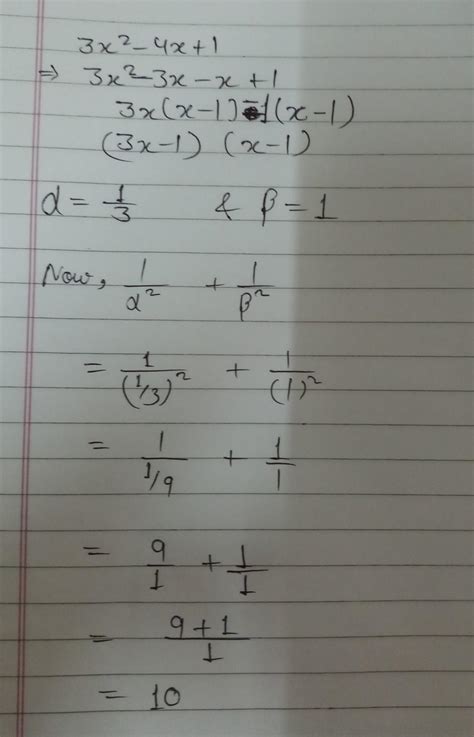 3x² - 4x + 1
⇒ 3x² - 3x - x + 1
3x(x - 1) - 1(x - 1)
(3x - 1) (x - 1)
α = 1/3 & β = 1
Now, 1/α² + 1/β²
= 1/(1/3)² + 1/(1)²
= 1/1/9 + 1/1
= 9/1 + 1/1
= 9 + 1/1
= 10